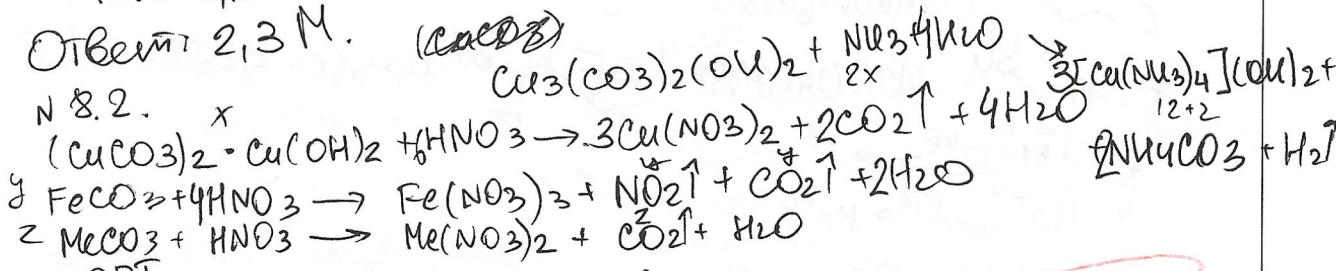 Ответ: 2,3 М.
Cu3(CO3)2(OH)2 + NH3·4H2O → 3[Cu(NH3)4](OH)2 +
2x 12+2
N 8.2. x
(CuCO3)2 · Cu(OH)2 + 6HNO3 → 3Cu(NO3)2 + 2CO2↑ + 4H2O
2NH4CO3 + H2↑
y y y
FeCO3 + 4HNO3 → Fe(NO3)3 + NO2↑ + CO2↑ + 2H2O
z z
MeCO3 + HNO3 → Me(NO3)2 + CO2↑ + H2O